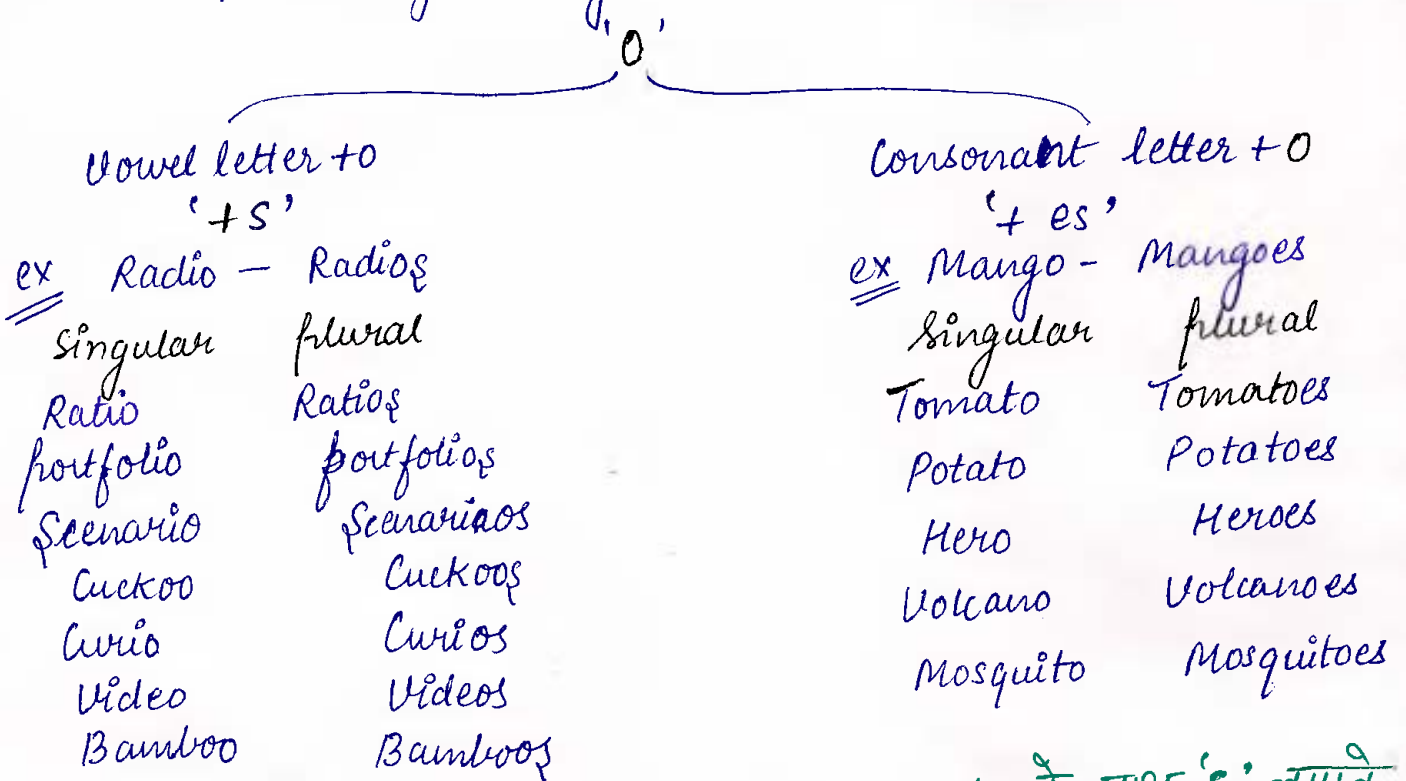 'O'
Vowel letter + o
'+ S'
ex Radio – Radios
Singular plural
Ratio Ratios
portfolio portfolios
Scenario Scenarios
Cuckoo Cuckoos
Curio Curios
Video Videos
Bamboo Bamboos
Consonant letter + O
'+ es'
ex Mango – Mangoes
Singular plural
Tomato Tomatoes
Potato Potatoes
Hero Heroes
Volcano Volcanoes
Mosquito Mosquitoes
's'